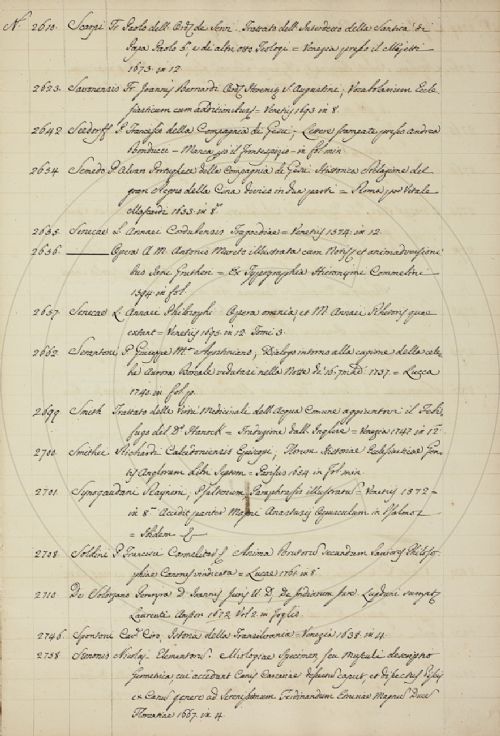 N.º 2610. Scarpi Fr. Paolo dell'Ord.e de Servi. Trattato dell'Interdetto della Santità di
Papa Paolo 5.º, e di altri otto Teologi = Venezia presso il Mejetti
1673. in 12
2623. Savonensis Fr. Joannis Bernardi S. Augustini; Vocabolarium Eccle
siasticum cum additionibus = Venetiis 1693 in 8.
2642 P. Francesco della Compagnia di Gesù; Lettere stampate presso Andrea
= Manca poi il frontespizio = in fol. min.
2654. Semedo P. Alvaro Portughese della Compagnia di Gesù. Historica Relazione del
gran Regno della Cina divisa in due parti = Roma per Vitale
Mascardi 1653. in 8.º
2655. Senecae L. Annaei Cordubensis Tragoediae = Venetiis 1574. in 12.
2656. ——— Opera A M. Antonio Mureto illustrata cum Notis et animadversioni
bus Jani Gruteri = Ex Typographia Hieronymi Commelini
1594 in fol.
2657 Senecae L. Annaei Philosophi Opera omnia, et M. Annaei Rhetoris quae
extant = Venetiis 1695. in 12 Tomi 3.
2662. Serantoni P. Giuseppe M.a Agostiniano; Dialogo intorno alla cagione della cele
be Aurora Boreale vedutasi nella Notte di 16 Xmbre 1737. = Lucca
1740. in fol. p.
2699 Smith Trattato delle Virtù Medicinale dell'Acqua Comune aggiuntovi il Febri
fugo del D.r Hancok = Traduzione dall'Inglese = Venezia 1747. in 12
2700. Smithei Richardi Calcedoniensis Episcopi; Florum Historiae Ecclesiasticae Gen
tis Anglorum Libri Septem = Parisiis 1654 in fol. min.
2701. Snoygoudani Raynerii, Psalterium Paraphrasis illustratus = Venetiis 1572 =
in 8.º Accedit pariter Magni Anastasii Opusculum in Psalmos
= Ibidem
2708. Soldini P. Francisci Carmelitae, Anima Brutorum secundum Philoso
phiae Canones vindicata = Lucae 1761 in 8.
2710. De Solorzano Pereyra D. Joannis Juris U. D.; De Indiarum Jure Lugduni sumptz
Laurentii Anisson 1672. Vol. 2. in foglio.
2746. Spontoni Cav.r Ciro, Istoria della Transilvania = Venezia 1638. in 4.
2758 Stenonis Nicolai Elementorum Miologiae Specimen, seu Musculi descriptio
Geometrica, cui accedunt Canis Carcariae dissectum caput, et dissectus Piscis
ex Canum genere ad Serenissimum Ferdinandum Etruriae Magnum Ducem
Florentiae 1667. in 4.